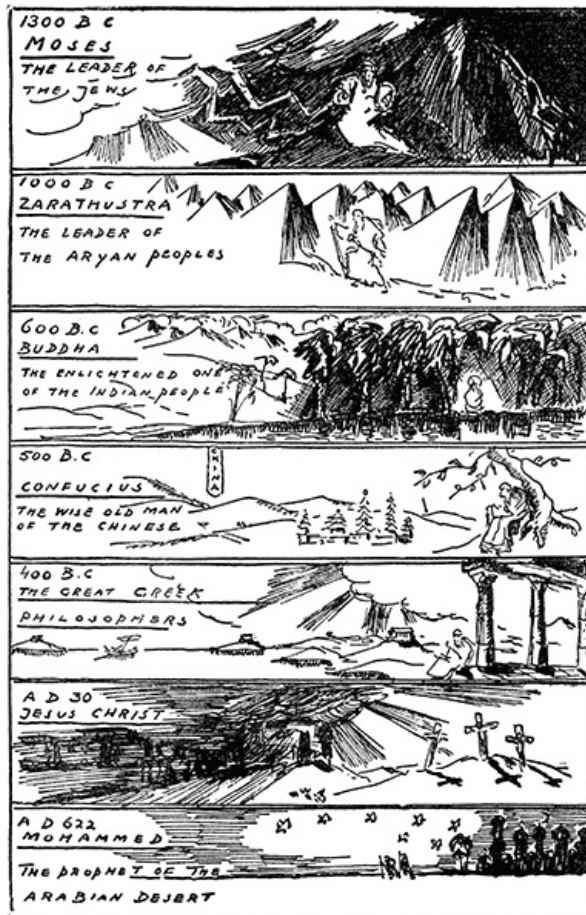 1300 B C
MOSES
THE LEADER OF
THE JEWS
1000 B C
ZARATHUSTRA
THE LEADER OF
THE ARYAN PEOPLES
600 B.C
BUDDHA
THE ENLIGHTENED ONE
OF THE INDIAN PEOPLE
500 B.C
CHINA
CONFUCIUS
THE WISE OLD MAN
OF THE CHINESE
400 B.C
THE GREAT GREEK
PHILOSOPHERS
A D 30
JESUS CHRIST
A D 622
MOHAMMED
THE PROPHET OF THE
ARABIAN DESERT